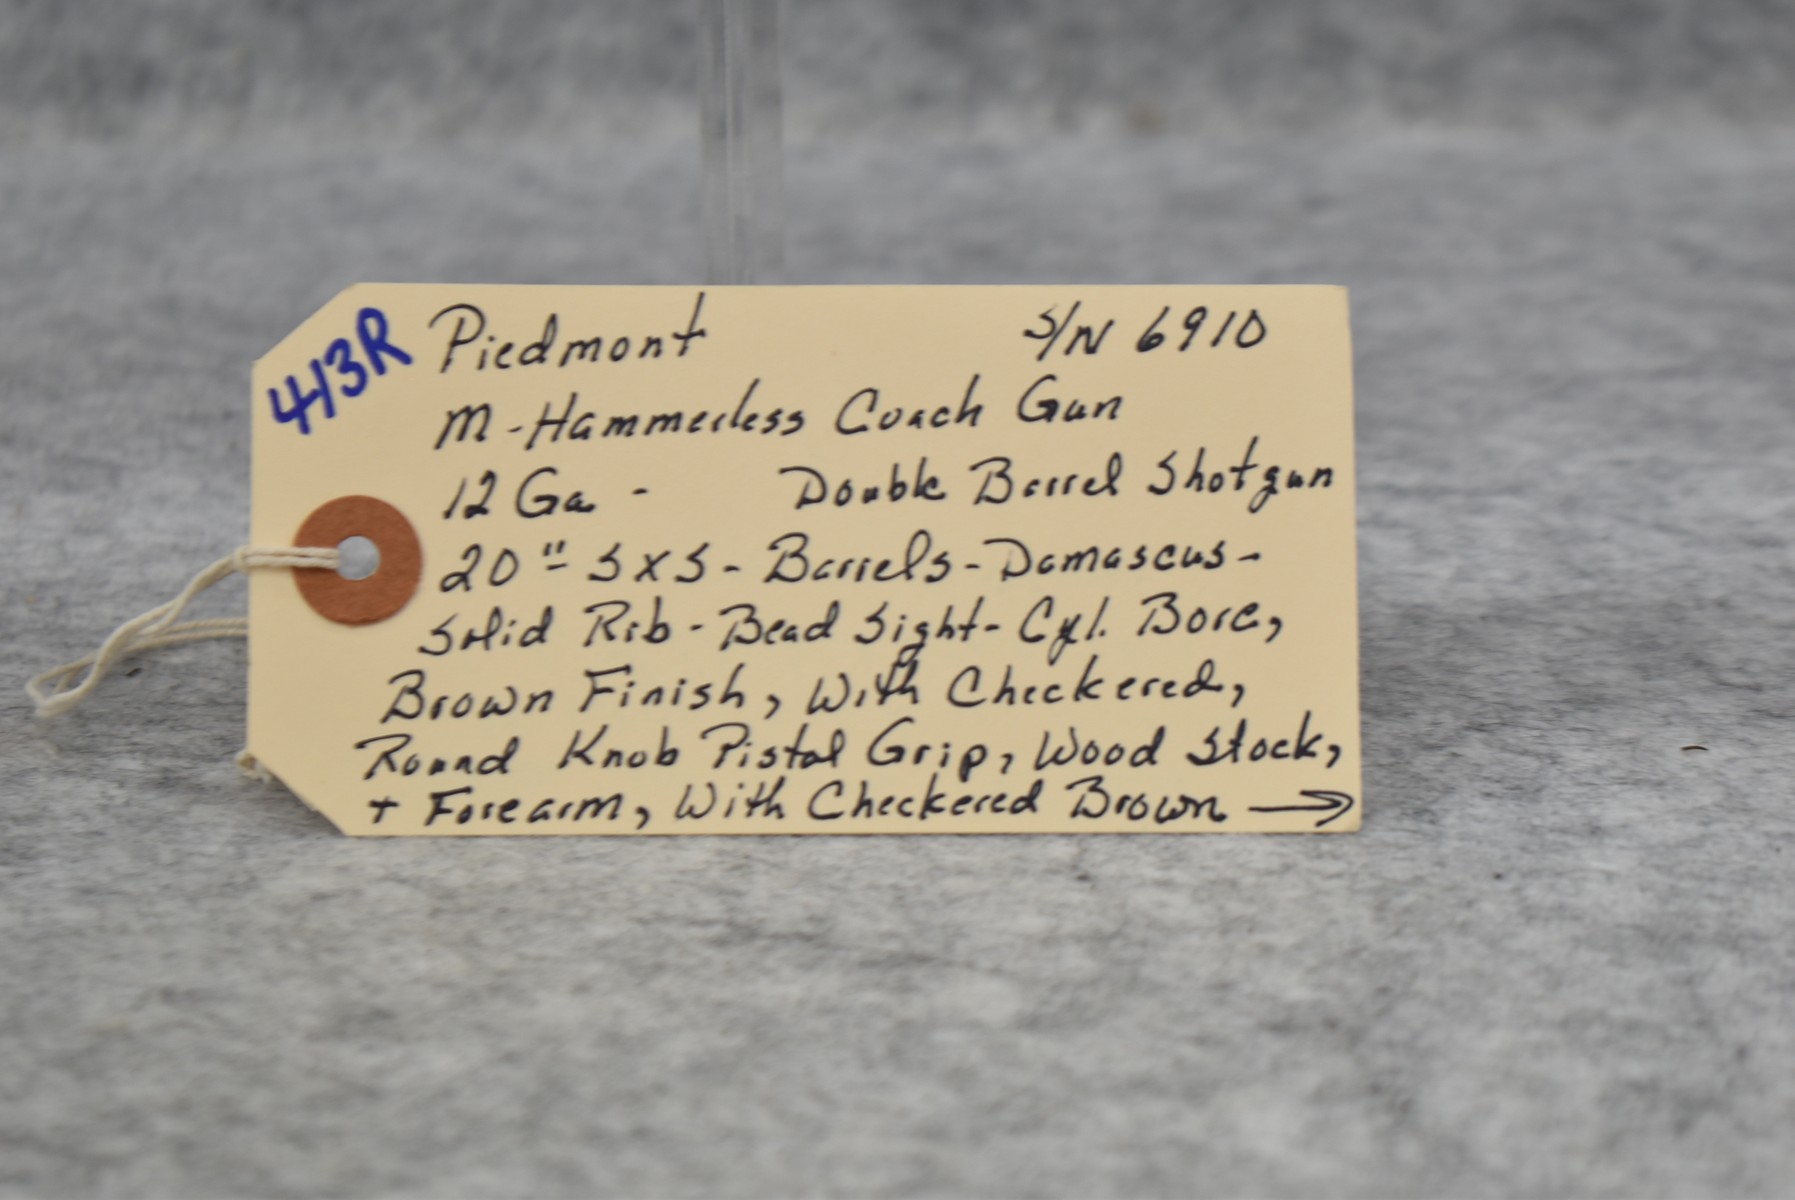 413R
Piedmont S/N 6910
M-Hammerless Coach Gun
12 Ga - Double Barrel Shotgun
20" SxS - Barrels - Damascus -
Solid Rib - Bead Sight - Cyl. Bore,
Brown Finish, With Checkered,
Round Knob Pistol Grip, Wood Stock,
+ Forearm, With Checkered Brown →